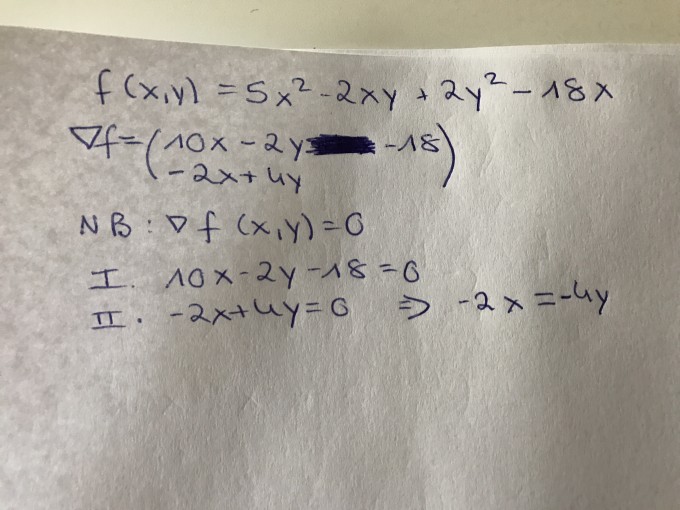 f(x,y) = 5x² - 2xy + 2y² - 18x
∇f = (10x - 2y - 18)
(-2x + 4y)
NB: ∇f(x,y) = 0
I. 10x - 2y - 18 = 0
II. -2x + 4y = 0 ⇒ -2x = -4y